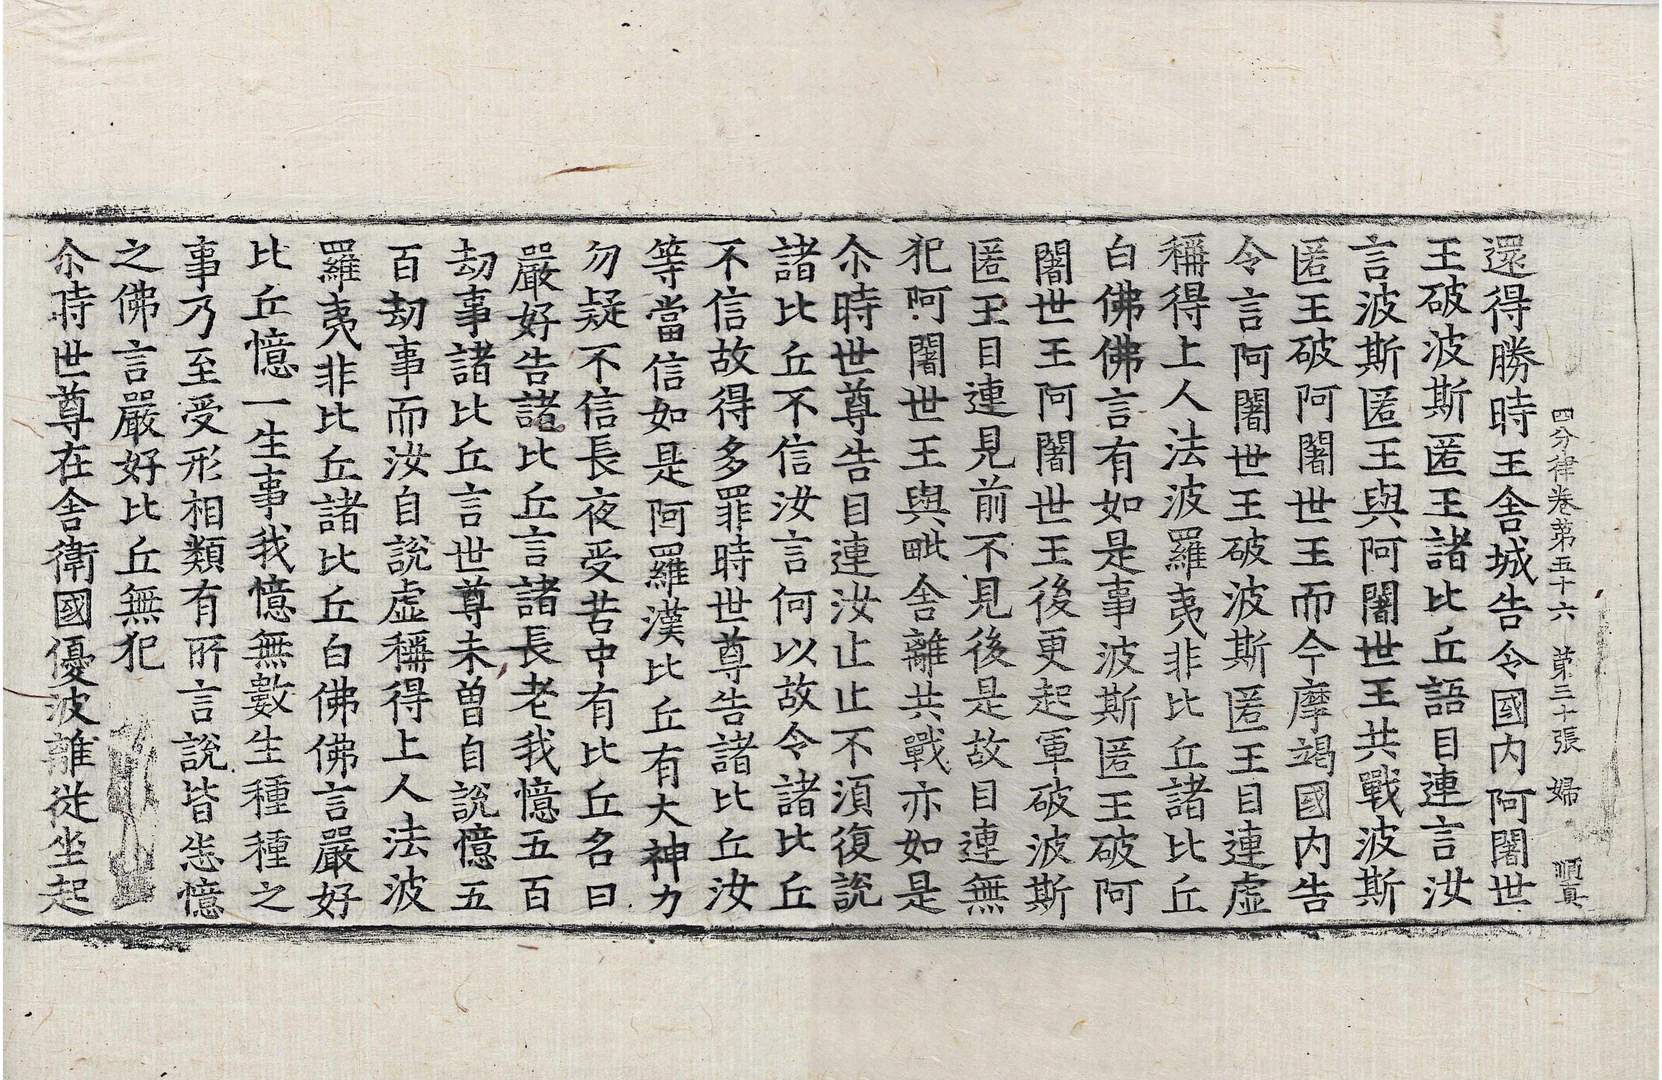 四分律卷第五十六 第三十張 婦 順真
還得勝時王舍城告令國内阿闍世
王破波斯匿王諸比丘語目連言汝
言波斯匿王與阿闍世王共戰波斯
匿王破阿闍世王而今摩竭國内告
令言阿闍世王破波斯匿王目連虛
稱得上人法波羅夷非比丘諸比丘
白佛佛言有如是事波斯匿王破阿
闍世王阿闍世王後更起軍破波斯
匿王目連見前不見後是故目連無
犯阿闍世王與毗舍離共戰亦如是
尒時世尊告目連汝止止不須復說
諸比丘不信汝言何以故令諸比丘
不信故得多罪時世尊告諸比丘汝
等當信如是阿羅漢比丘有大神力
勿疑不信長夜受苦中有比丘名曰
嚴好告諸比丘言諸長老我憶五百
劫事諸比丘言世尊未曾自說憶五
百劫事而汝自說虛稱得上人法波
羅夷非比丘諸比丘白佛佛言嚴好
比丘憶一生事我憶無數生種種之
事乃至受形相類有所言說皆悉憶
之佛言嚴好比丘無犯
尒時世尊在舍衛國優波離從坐起